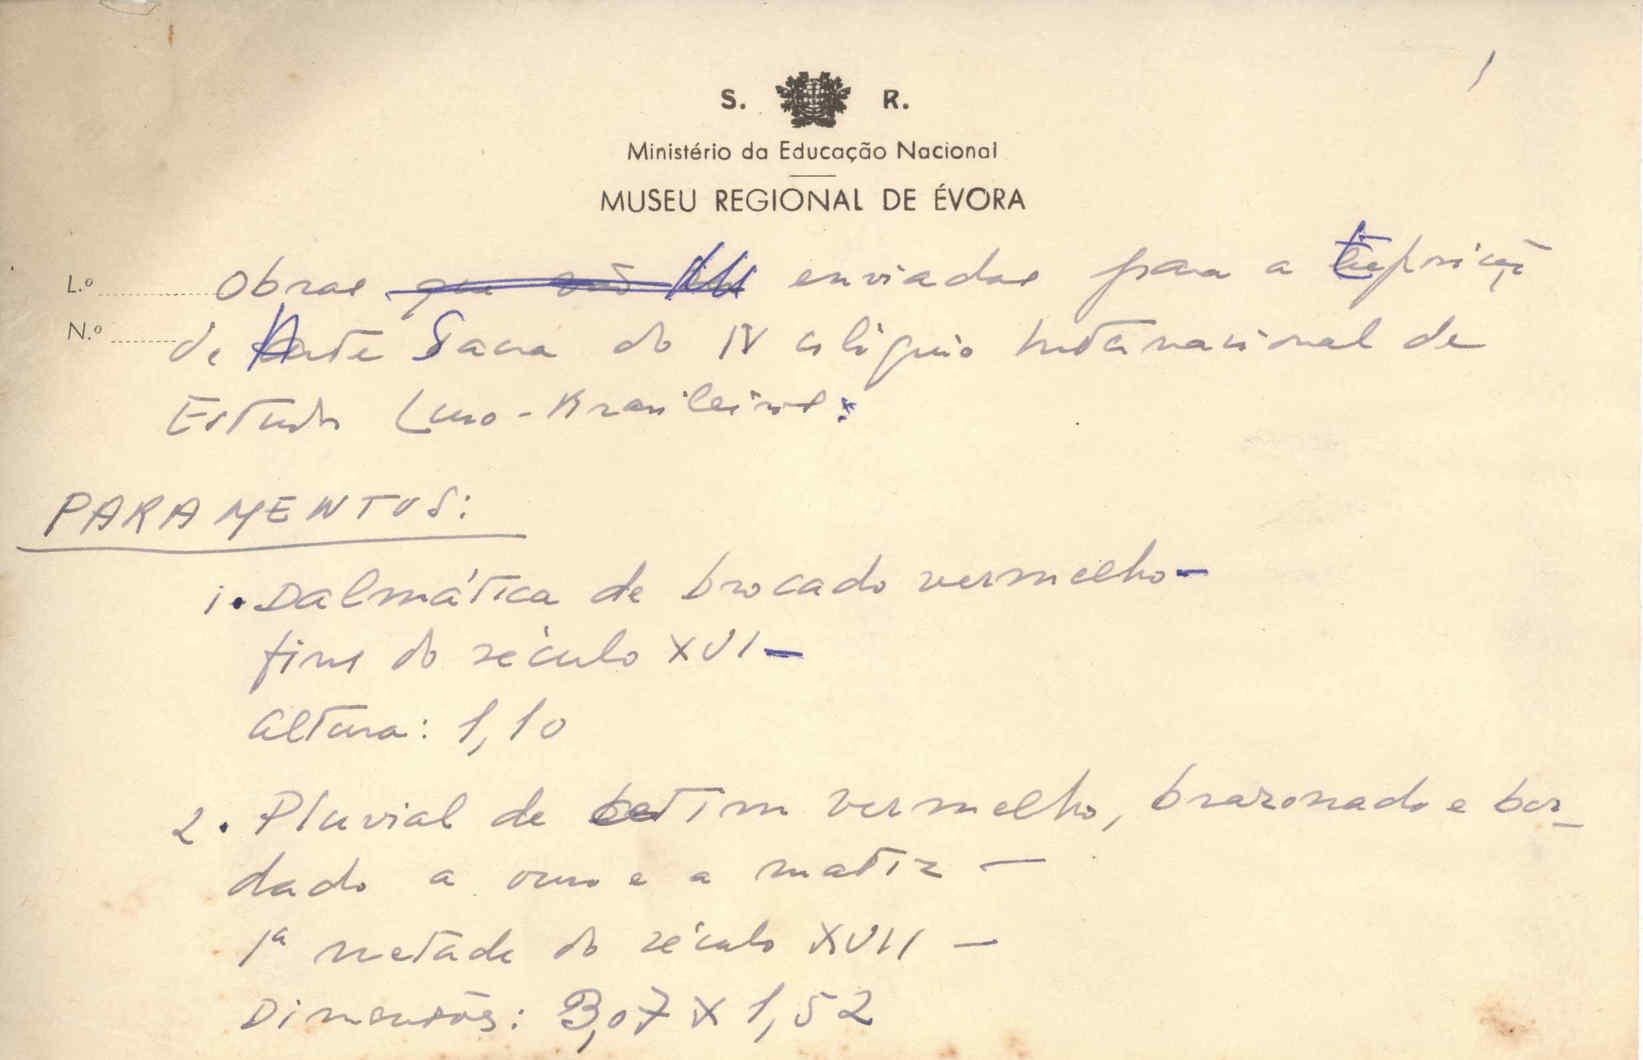 1
S. R.
Ministério da Educação Nacional
MUSEU REGIONAL DE ÉVORA
L.º Obras que são enviadas para a Exposição
N.º de Arte Sacra do IV Colóquio Internacional de
Estudos Luso-Brasileiros:
PARAMENTOS:
1. Dalmática de brocado vermelho -
fins do século XVI -
Altura: 1,10
2. Pluvial de cetim vermelho, brazonado e bor_
dado a ouro e a matiz -
1ª metade do século XVII -
Dimensões: 3,07 X 1,52